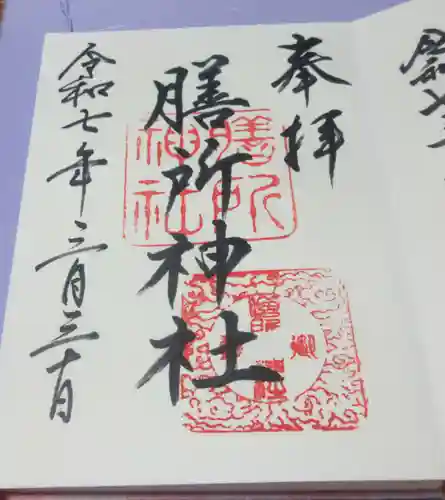 奉拝
膳所神社
令和七年三月三十日
膳所
神社